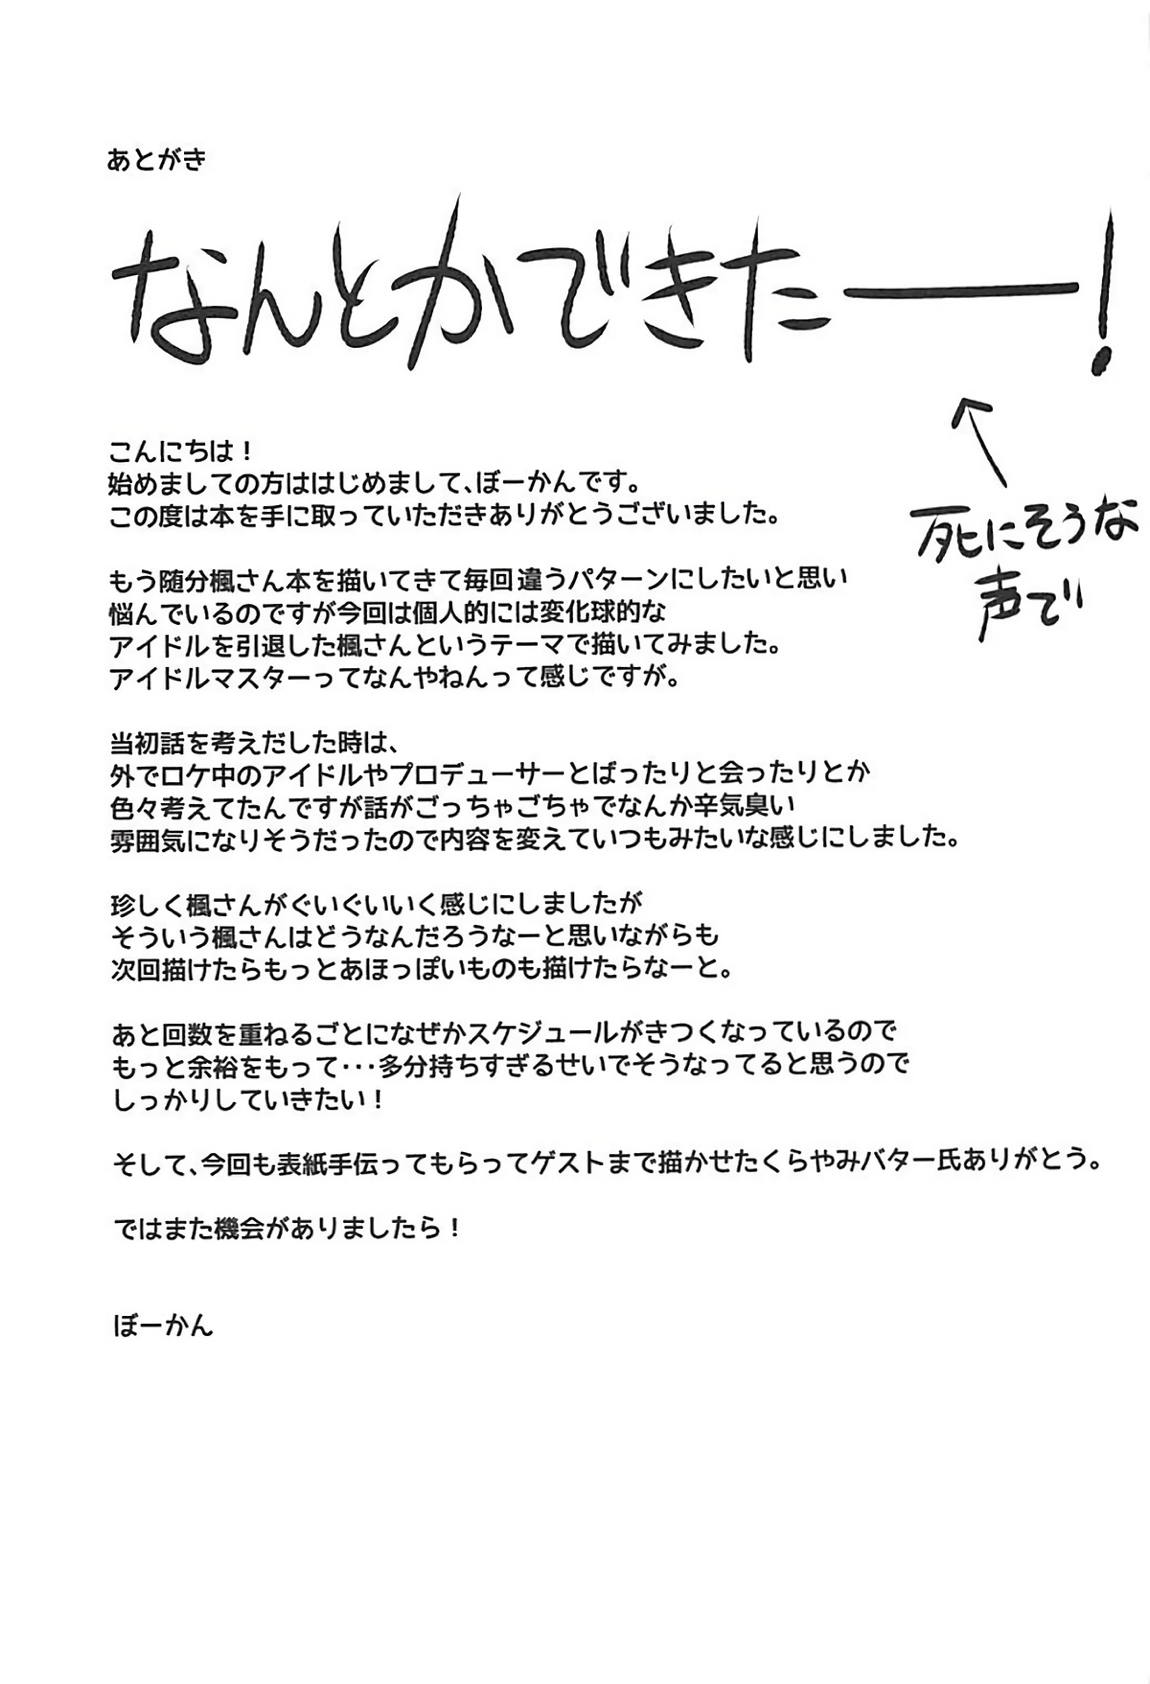 あとがき
なんとかできたー！
死にそうな
声で
こんにちは！
始めましての方ははじめまして、ぼーかんです。
この度は本を手に取っていただきありがとうございました。
もう随分楓さん本を描いてきて毎回違うパターンにしたいと思い
悩んでいるのですが今回は個人的には変化球的な
アイドルを引退した楓さんというテーマで描いてみました。
アイドルマスターってなんやねんって感じですが。
当初話を考えだした時は、
外でロケ中のアイドルやプロデューサーとばったりと会ったりとか
色々考えてたんですが話がごっちゃごちゃでなんか辛気臭い
雰囲気になりそうだったので内容を変えていつもみたいな感じにしました。
珍しく楓さんがぐいぐいいく感じにしましたが
そういう楓さんはどうなんだろうなーと思いながらも
次回描けたらもっとあほっぽいものも描けたらなーと。
あと回数を重ねるごとになぜかスケジュールがきつくなっているので
もっと余裕をもって･･･多分持ちすぎるせいでそうなってると思うので
しっかりしていきたい！
そして、今回も表紙手伝ってもらってゲストまで描かせたくらやみバター氏ありがとう。
ではまた機会がありましたら！
ぼーかん